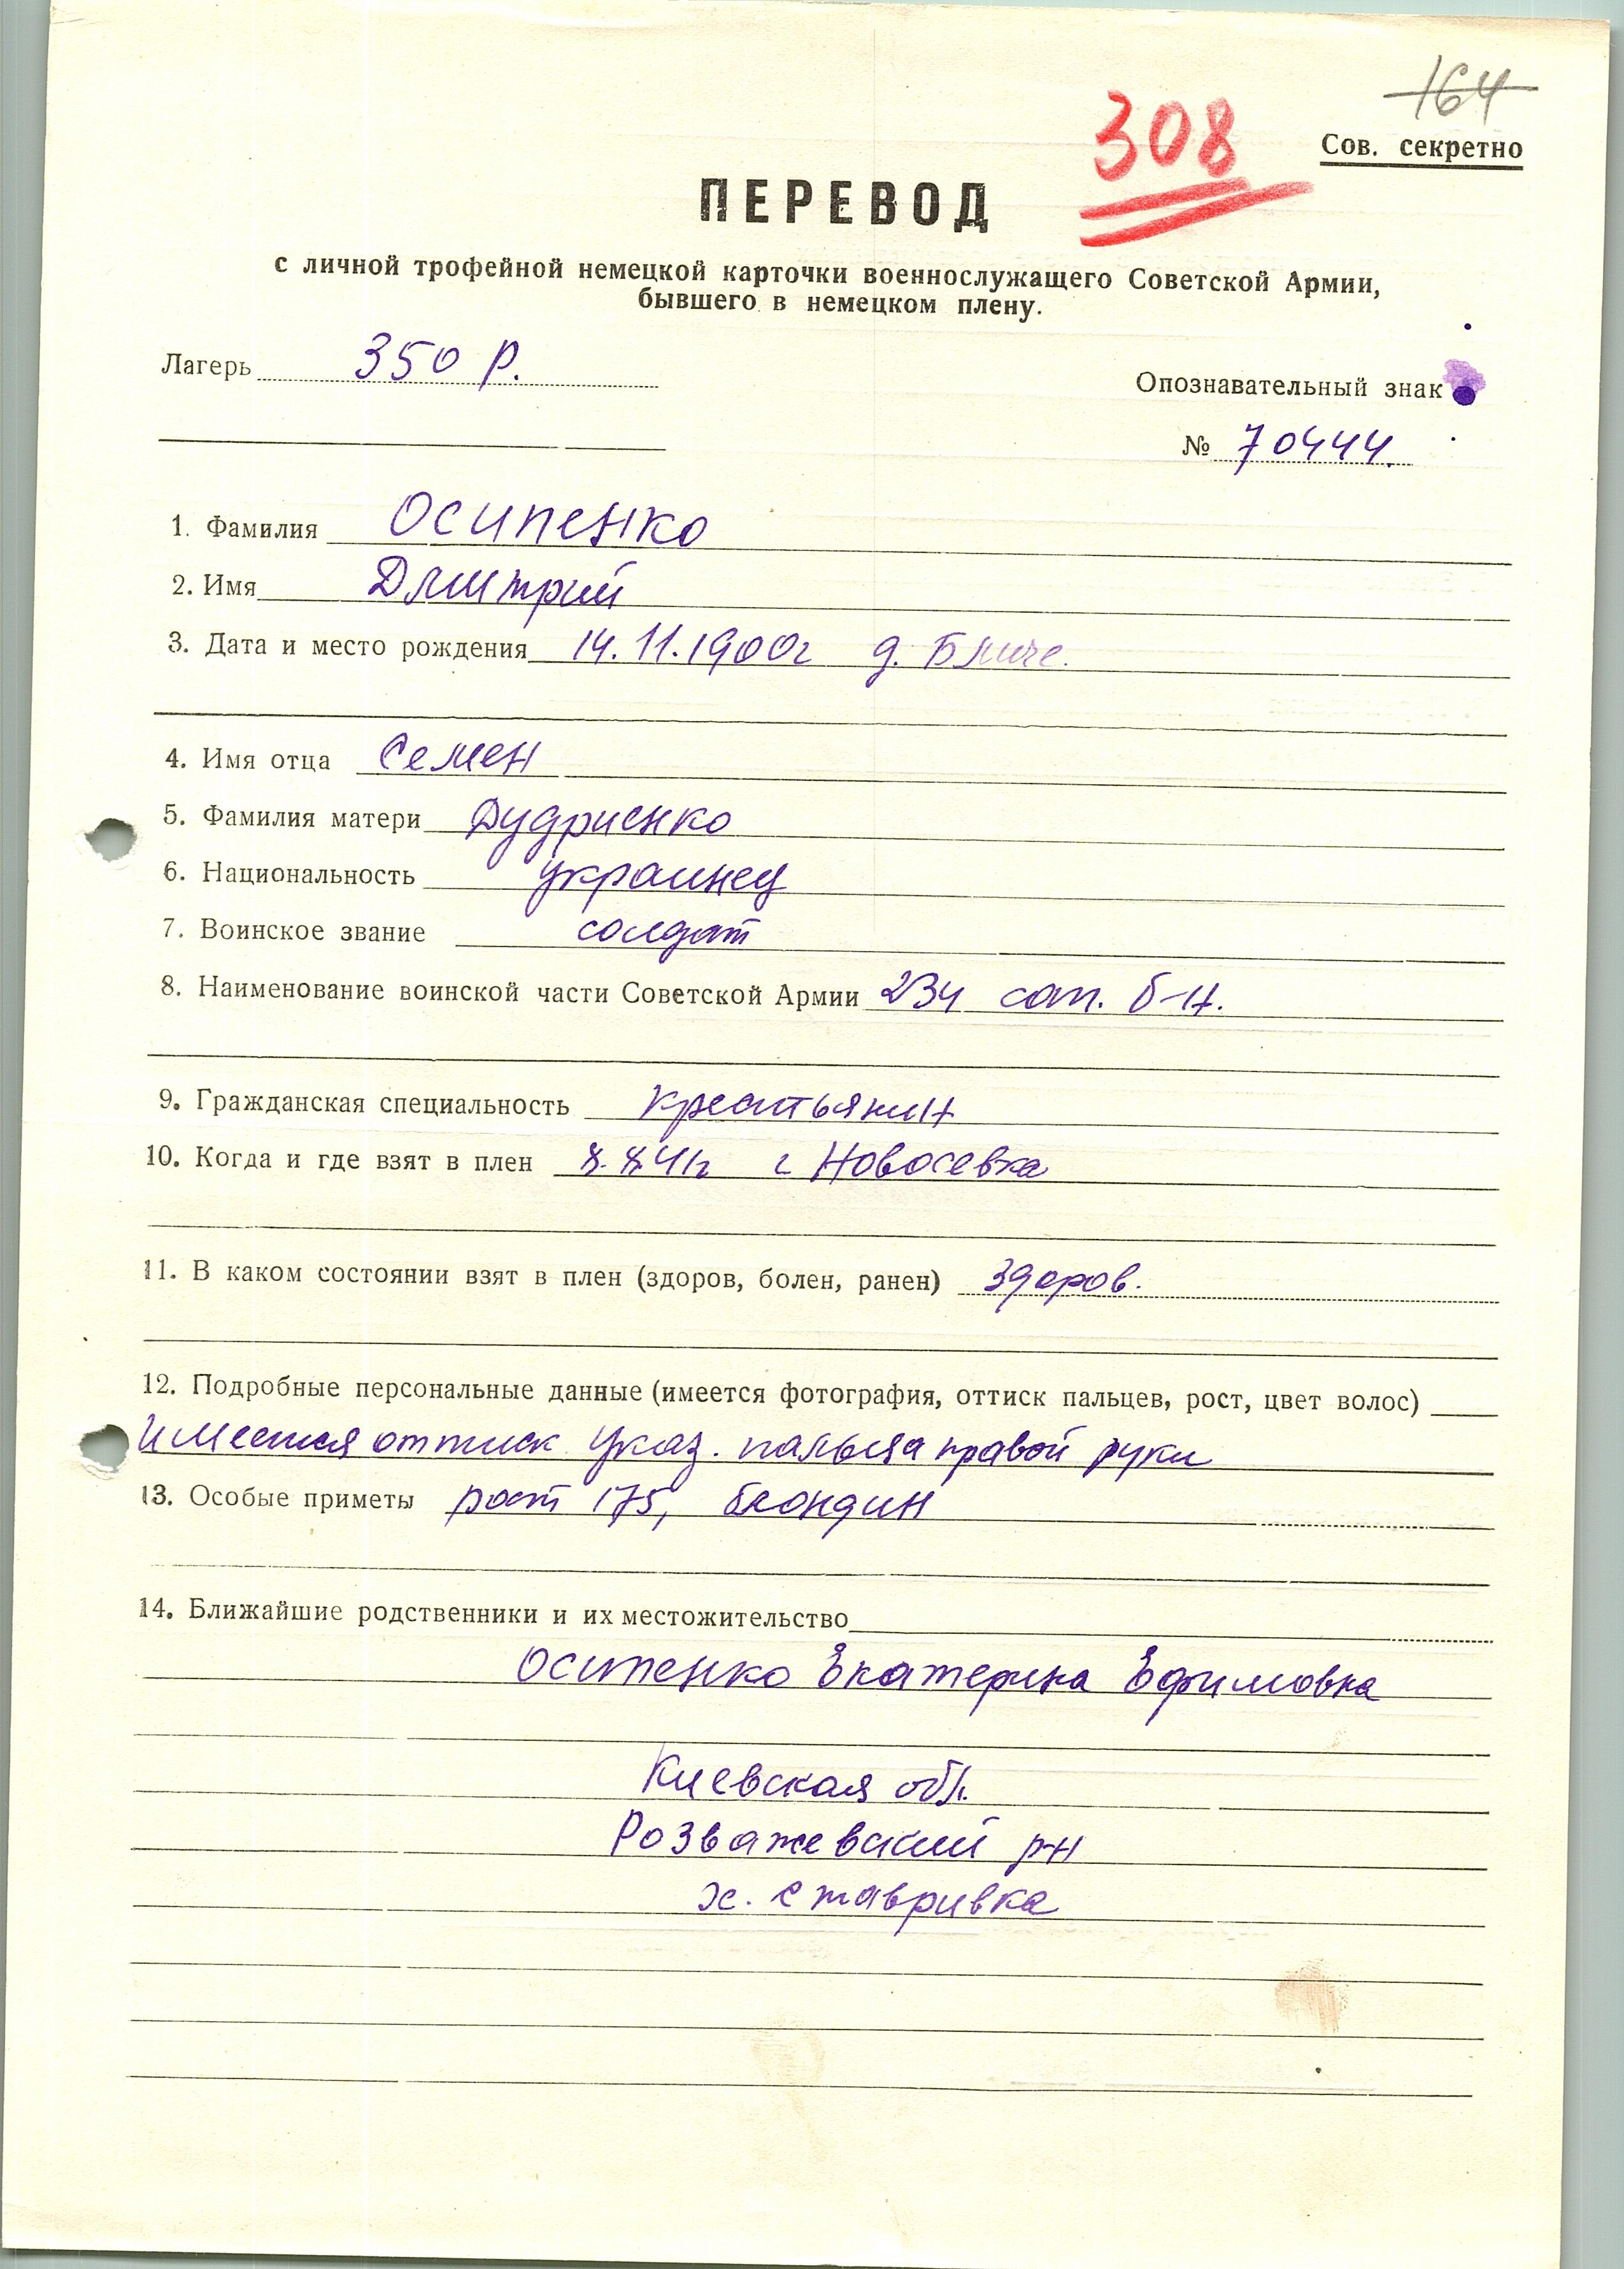 164
308
Сов. секретно
ПЕРЕВОД
с личной трофейной немецкой карточки военнослужащего Советской Армии,
бывшего в немецком плену.
Лагерь 350 Р.
Опознавательный знак
№ 70444.
1. Фамилия Осипенко
2. Имя Дмитрий
3. Дата и место рождения 14.11.1900г д.
4. Имя отца Семен
5. Фамилия матери Дудриенко
6. Национальность украинец
7. Воинское звание солдат
8. Наименование воинской части Советской Армии 234 сап. б-н.
9. Гражданская специальность крестьянин
10. Когда и где взят в плен г Новосевка
11. В каком состоянии взят в плен (здоров, болен, ранен) здоров.
12. Подробные персональные данные (имеется фотография, оттиск пальцев, рост, цвет волос)
имеется оттиск указ. пальца правой руки
13. Особые приметы рост 175, блондин
14. Ближайшие родственники и их местожительство
Осипенко Екатерина Ефимовна
Киевская обл.
Розважевский р-н
х. Ставривка